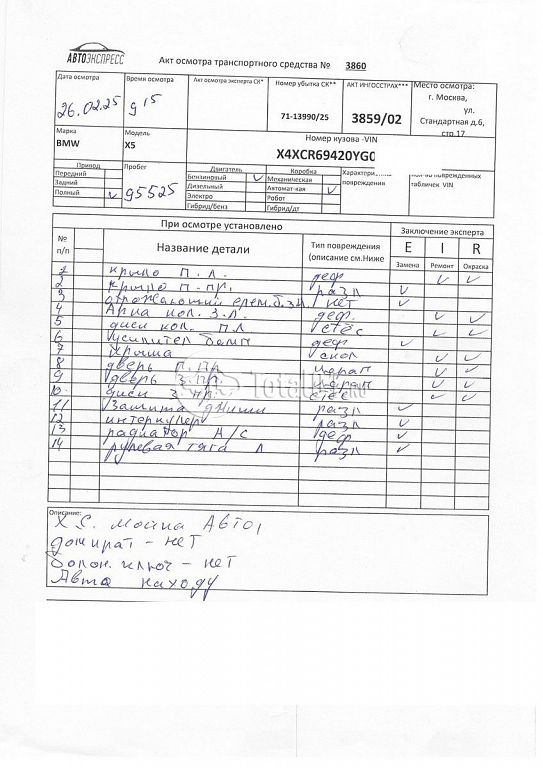 АВТОЭКСПРЕСС
Акт осмотра транспортного средства № 3860
Дата осмотра
26.02.25
Время осмотра
9 15
Акт осмотра эксперта СК*
Номер убытка СК**
71-13990/25
АКТ ИНГОССТРАХ***
3859/02
Место осмотра:
г. Москва,
ул.
Стандартная д.6,
стр.17
Марка
BMW
Модель
X5
Номер кузова -VIN
X4XCR69420YG0
Привод
Передний
Задний
Полный ✓
Пробег
95525
Двигатель
Бензиновый ✓
Дизельный
Электро
Гибрид/бенз
Коробка
Механическая
Автомат-кая ✓
Робот
Гибрид/дт
повреждения
поврежденных
табличек VIN
При осмотре установлено
Заключение эксперта
№ п/п
Название детали
Тип повреждения
(описание см.Ниже
E I R
Замена Ремонт Окраска
1 крыло п. л. деф ✓ ✓
2 крыло п. пр. разл ✓
3 нет ✓
4 Арка кол. з.л. деф. ✓ ✓
5 диск кол. п.л стёс ✓ ✓
6 усилител бамп деф ✓
7 крыша скол ✓ ✓
8 дверь п.пр. царап ✓ ✓
9 дверь з.пр. царап ✓ ✓
10 диск з.пр. стёс ✓ ✓
11 Защита днищи разл ✓
12 интеркулер разл ✓
13 радиатор А/С деф ✓
14 рулевая тяга л разл ✓
Total
.RU
Описание:
Х.С. мойка Авто,
домкрат - нет
болон. ключ - нет
Авто на ходу